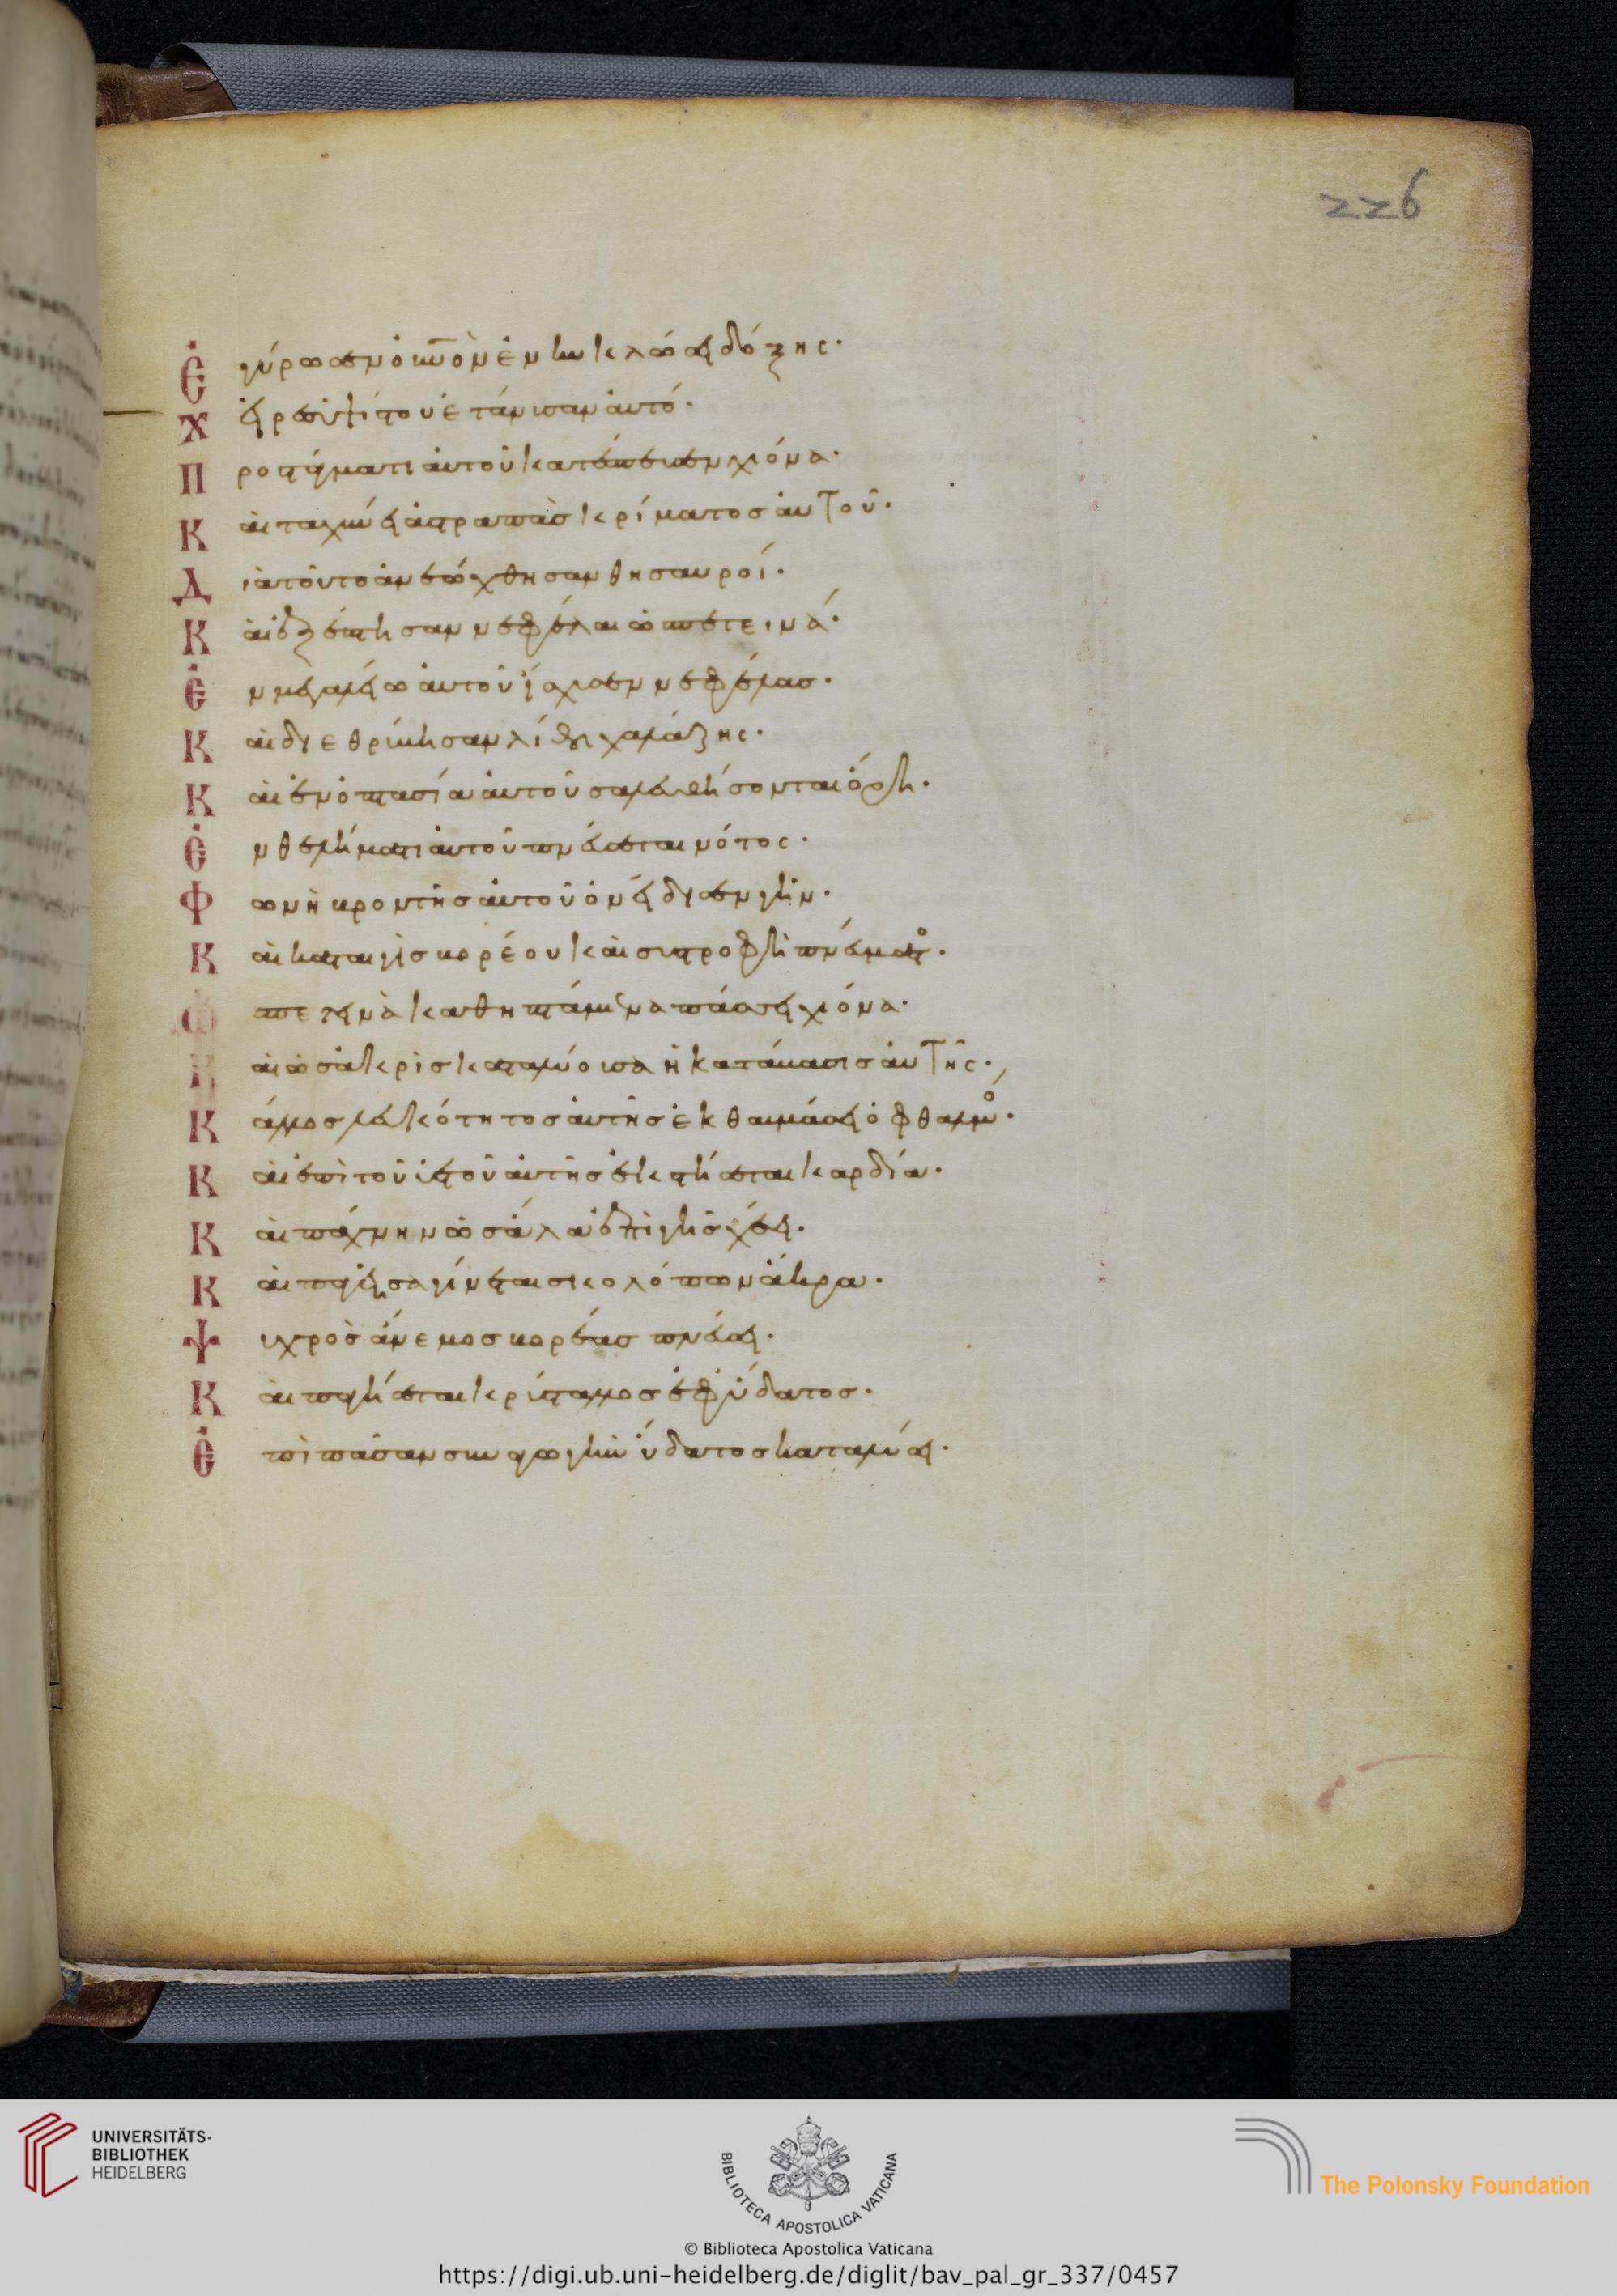 226
Ἐγύρωσεν ὀυνὸν ἐν κυκλώσει δόξης·
Χεῖρες ὑψίστου ἐτάνυσαν ἀυτό·
Προστάγματι ἀυτοῦ κατέσπευσεν χιόνα·
Καὶ ταχύνει ἀστραπὰσ κρίματοσ ἀυτοῦ·
Διὰ τοῦτο ἀνεώχθησαν θησαυροί·
Καὶ ἐξέπτησαν νεφέλαι ὡσ πετεινά·
Ἐν μεγαλείω ἀυτοῦ ἴσχυσεν νεφέλασ·
Καὶ διεθρύβησαν λίθοι χαλάζης·
Καὶ ἐν ὀπτασία ἀυτοῦ σαλευθήσονται ὄρη·
Ἐν θελήματι ἀυτοῦ πνεύσεται νότος·
Φωνὴ βροντῆσ ἀυτοῦ ὀνείδισεν γῆν·
Καὶ καταιγὶσ βορέου καὶ συστροφὴ πνεύματος·
Ὡσ πετεινὰ καθηπτάμενα πάσσει χιόνα·
Καὶ ὡσ ἀκρὶσ καταλύουσα ἡ κατάβασισ ἀυτῆς·
Κάλλοσ λευκότητοσ ἀυτῆσ ἐκθαυμάσει ὀφθαλμὸς·
Καὶ ἐπὶ τοῦ ὑετοῦ ἀυτῆσ ἐκστήσεται καρδία·
Καὶ πάχνην ὡσ ἅλα ἐπὶ γῆσ χέει·
Καὶ παγεῖσα γίνεται σκολόπων ἄκρα·
Ψυχρὸσ ἄνεμοσ βορέασ πνεύσει·
Καὶ παγήσεται κρύσταλλοσ ἐφ ὕδατοσ·
Ἐπὶ πᾶσαν συναγωγὴν ὕδατοσ καταλύσει·
UNIVERSITÄTS-
BIBLIOTHEK
HEIDELBERG
BIBLIOTECA APOSTOLICA VATICANA
The Polonsky Foundation
© Biblioteca Apostolica Vaticana
https://digi.ub.uni-heidelberg.de/diglit/bav_pal_gr_337/0457